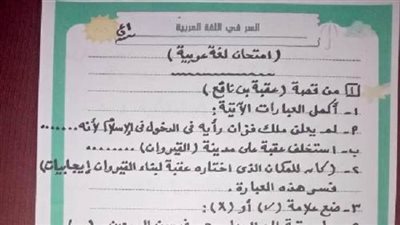 السر في اللغة العربية
(امتحان لغة عربية)
١ من قصة (عقبة بن نافع)
١- أكمل العبارات الآتية:
٩- لم يعلن ملك فزان رأيه فى الدخول فى الإسلام لأنه ........
ب- استخلف عقبة على مدينة (القيروان) ........
٢- (كان للمكان الذى اختاره عقبة لبناء القيروان إيجابيات
فسر هذه العبارة.
٣- ضع علامة (√) أو (X):